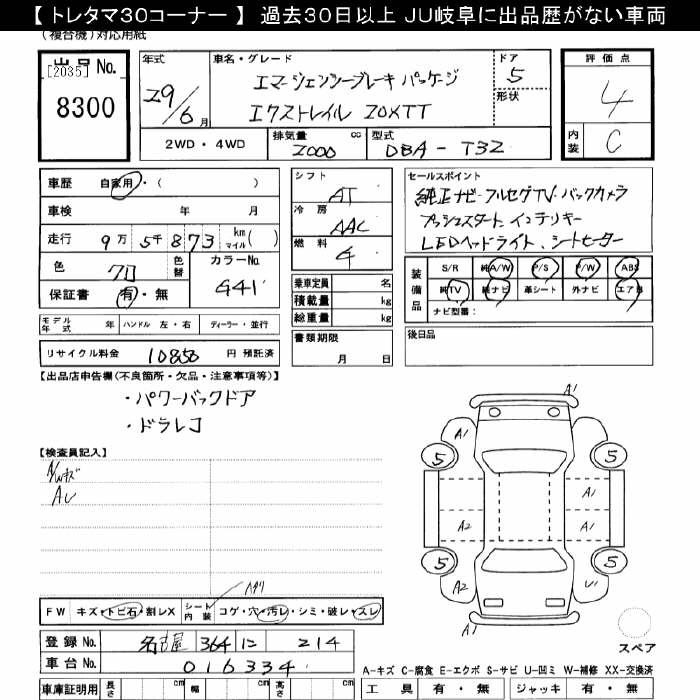 【 トレタマ30コーナー 】 過去30日以上 JU岐阜に出品歴がない車両
(複合機)対応用紙
出品 No.
[2035]
8300
年式
29/6 月
車名・グレード
エマージェンシーブレーキ パッケージ
エクストレイル 20XTT
ドア
5
形状
評価点
4
内装
C
2WD・4WD
排気量 cc
2000
型式
DBA - T32
車歴 自家用・( )
車検 年 月
走行 9万 5千 873 km マイル( )
色 クロ 色替
カラーNo. G41
保証書 有・無
シフト AT
冷房 AAC
燃料
乗車定員 名
積載量 kg
総重量 kg
書類期限
月 日
セールスポイント
純正ナビ・フルセグTV・バックカメラ
プッシュスタート、インテリキー
LEDヘッドライト、シートヒーター
装備品
S/R 純A/W P/S P/W ABS
純TV 純ナビ 革シート 外ナビ エアB
ナビ型番:
後日品
モデル年式 年 ハンドル 左・右 ディーラー・並行
リサイクル料金 10850 円 預託済
【出品店申告欄(不良箇所・欠品・注意事項等)】
・パワーバックドア
・ドラレコ
【検査員記入】
A/Wキズ
AU
A1
A1
5
5
A1
A2
A1
5
5
A2
U1
スペア
FW キズ・トビ石・割レX
シート内装 コゲ・穴・汚レ・シミ・破レ・スレ
登録 No. 名古屋 364 に 214
車台 No. 016334
A-キズ C-腐食 E-エクボ S-サビ U-凹ミ W-補修 XX-交換済
車庫証明用 長さ cm 幅 cm 高さ cm
工具 有・無 ジャッキ 有・無